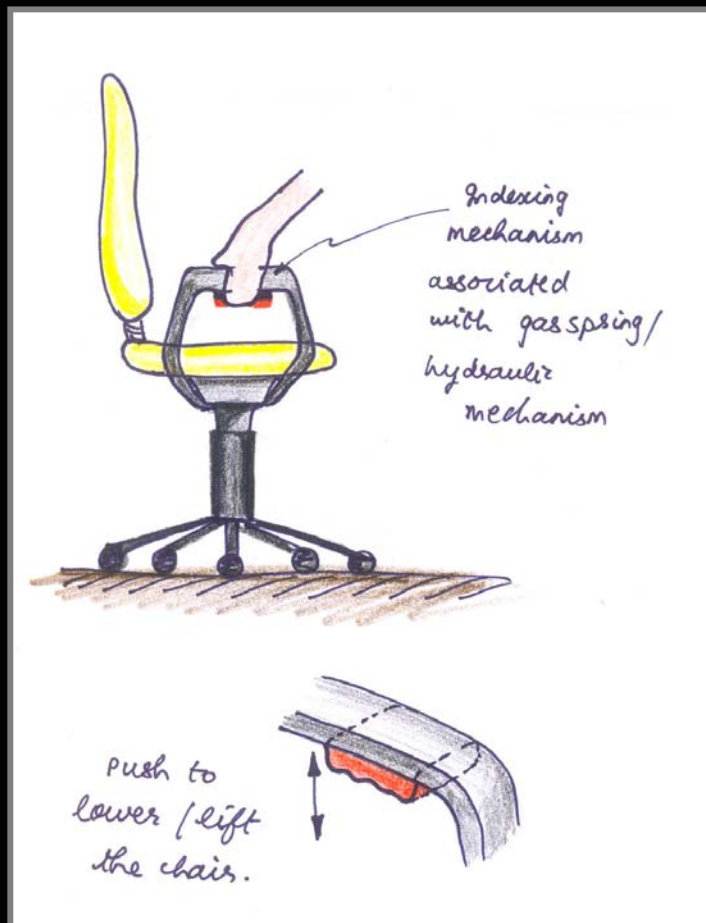 Indexing
mechanism
associated
with gas spring/
hydraulic
mechanism
Push to
lower / lift
the chair.